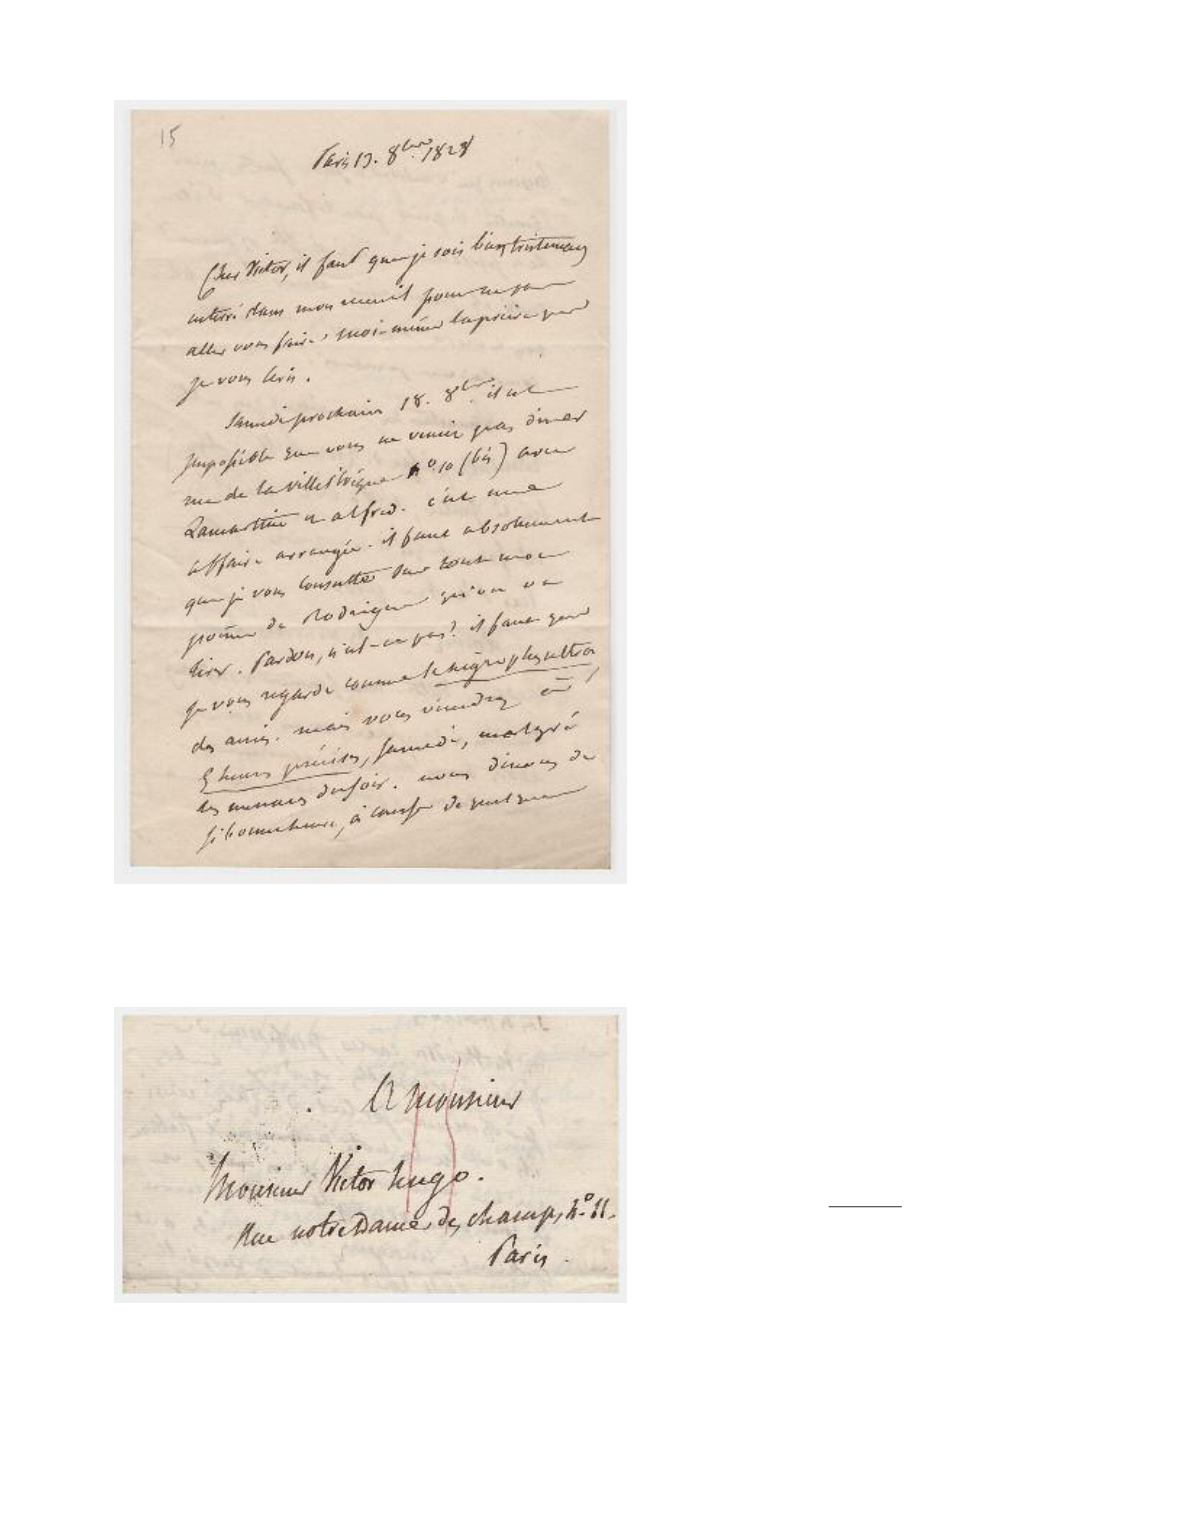 15
Paris 13. 8bre 1828
Cher Victor, il faut que je sois bien tristement
enterré dans mon pour ne pas
aller vous faire moi-même la prière que
je vous écris.
Samedi prochain 18. 8bre il est
impossible que vous ne veniez pas diner
rue de la ville l'évêque n° 10 (bis) avec
Lamartine et alfred. c'est une
affaire arrangée. il faut absolument
que je vous consulte sur tout mon
poëme de Rodrigue qu'on va
tirer. Pardon, n'est-ce pas? il faut que
je vous regarde comme le nec plus ultra
des amis. mais vous viendrez à
5 heures précises, samedi, malgré
les du soir. nous dinons de
si bonne heure, à cause de quelques
A monsieur
Monsieur Victor hugo.
Rue notre Dame des champs, n° 11.
Paris.